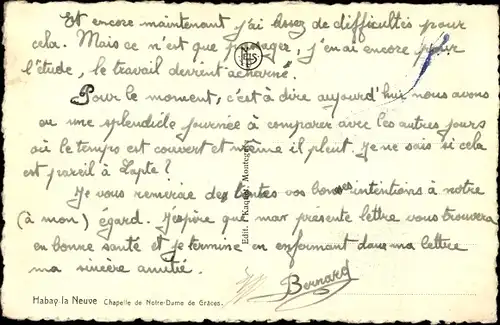 Et encore maintenant j'ai assez de difficultés pour
cela. Mais ce n'est que passager, j'en ai encore pour
l'étude, le travail devient acharné.
Pour le moment, c'est à dire aujourd'hui nous avons
eu une splendide journée à comparer avec les autres jours
où le temps est couvert et même il pleut. Je ne sais si cela
est pareil à Lapte?
Je vous remercie des toutes vos bonnes intentions à notre
(à mon) égard. J'espère que ma présente lettre vous trouvera
en bonne santé et je termine en enfermant dans ma lettre
ma sincère amitié.
Bernard
Edit.
Habay la Neuve Chapelle de Notre-Dame de Grâces.